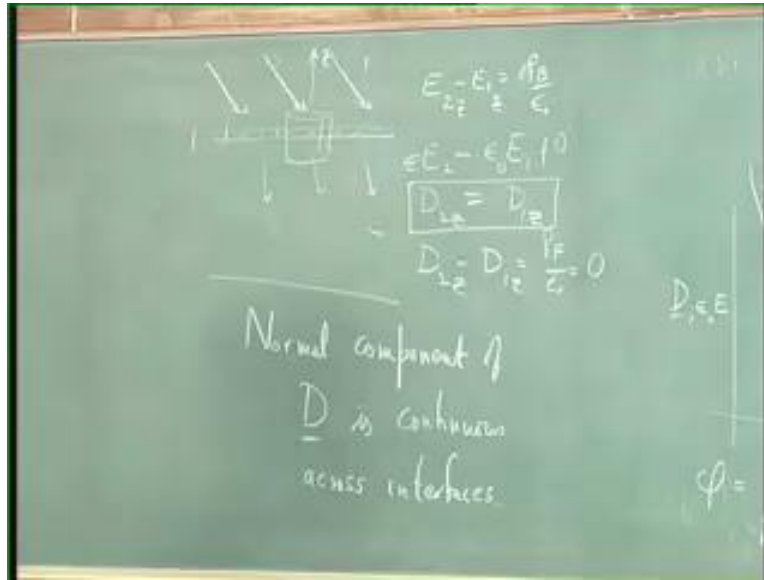 z
E₂z - E₁z = ρB / ε₀
εE₂ - ε₀E₁
D₂z = D₁z
D₂z - D₁z = ρF / ε₀ = 0
Normal component of
D is continuous
across interfaces
D₁ ε₀ E
φ =